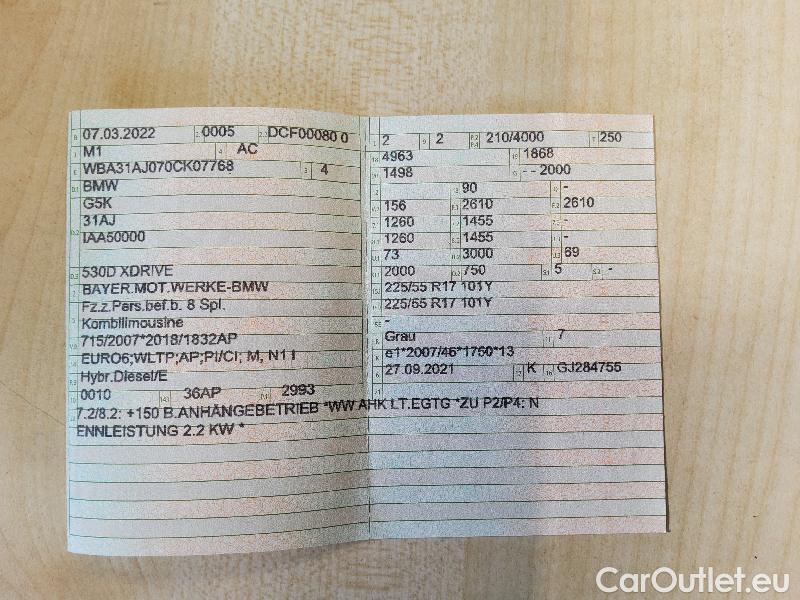 07.03.2022 0005 DCF00080 0
M1 AC
WBA31AJ070CK07768 4
BMW
G5K
31AJ
IAA50000
530D XDRIVE
BAYER.MOT.WERKE-BMW
Fz.z.Pers.bef.b. 8 Spl.
Kombilimousine
715/2007*2018/1832AP
EURO6;WLTP;AP;PI/CI; M, N1 I
Hybr.Diesel/E
0010 36AP 2993
7.2/8.2: +150 B.ANHÄNGEBETRIEB *WW AHK LT.EGTG *ZU P2/P4: N
ENNLEISTUNG 2.2 KW *
2 2 210/4000 250
4963 1868
1498 - - 2000
90 -
156 2610 2610
1260 1455 -
1260 1455 -
73 3000 69
2000 750 5 -
225/55 R17 101Y
225/55 R17 101Y
-
Grau 7
e1*2007/46*1750*13
27.09.2021 K GJ284755
CarOutlet.eu